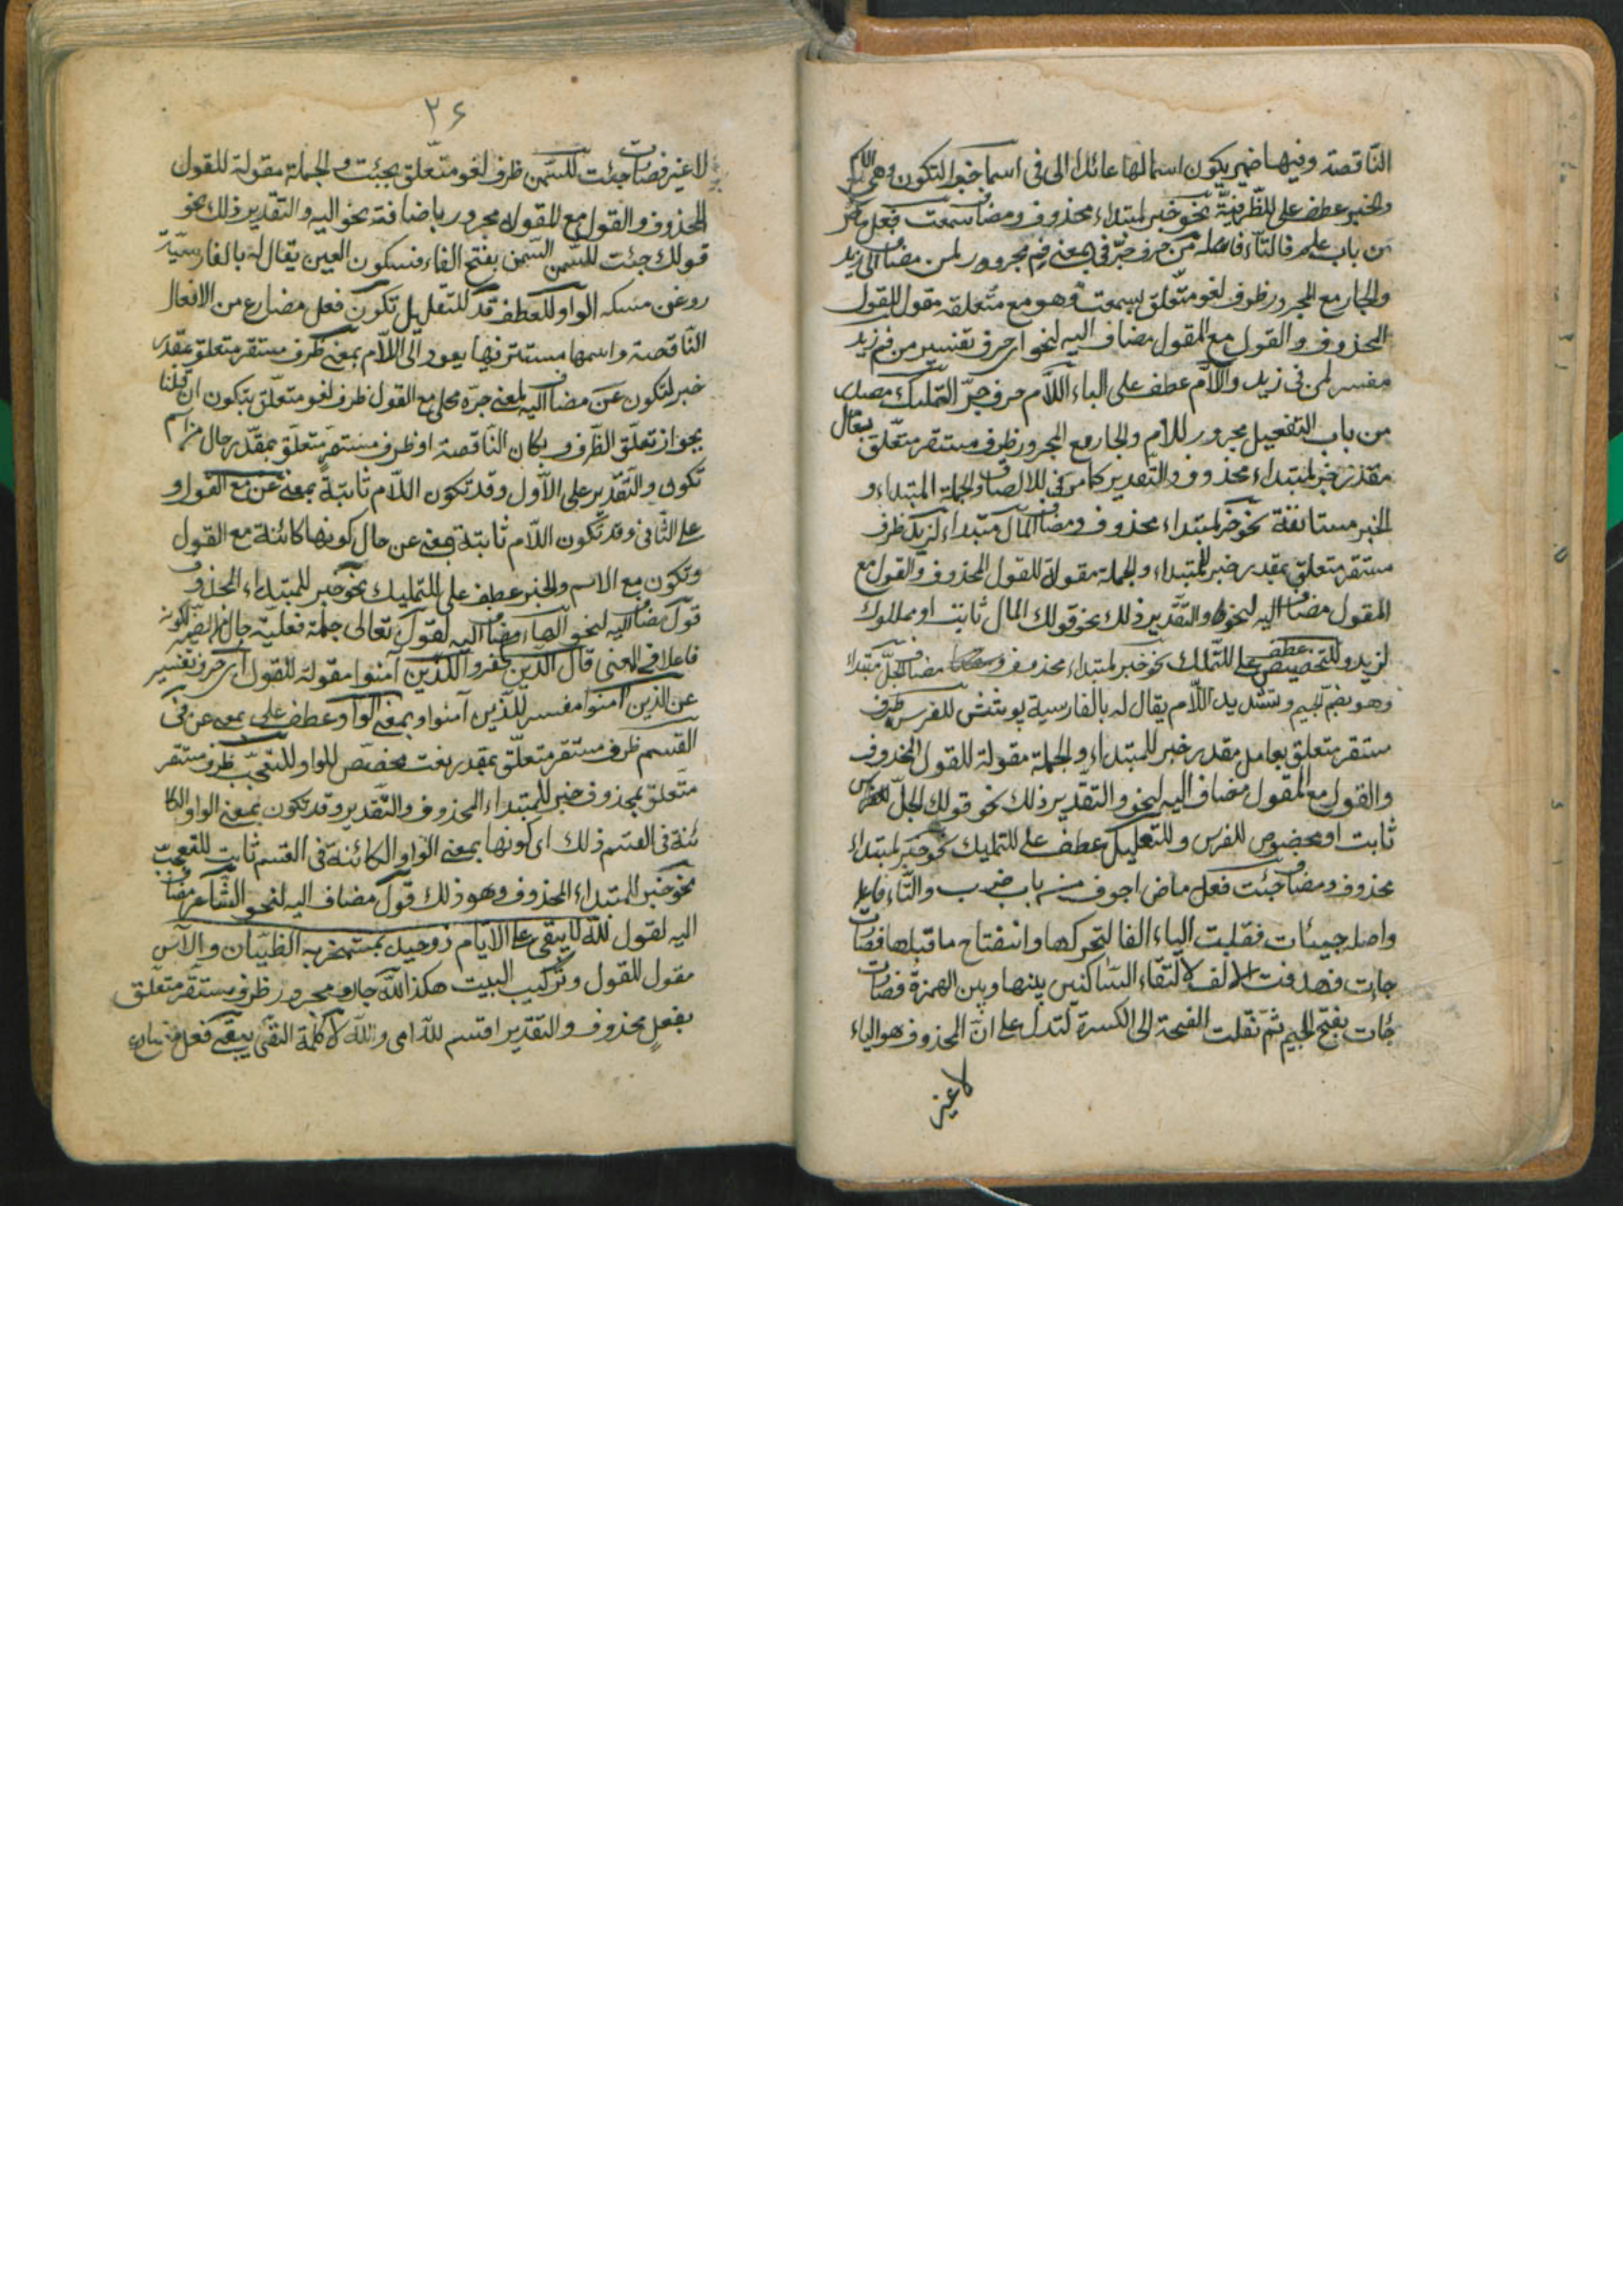 الناقصة وفيها ضمير يكون اسمالها عائد الى فى اسما خبر التكون وهى اللام
والخبر عطف على للظرفية نحو خبر لمبتداء محذوف ومضاف سمعت فعل
من باب علم فالتاء فاعله من حرف جر فى بمعنى فم مجرور لمن مضاف الى زيد
والجار مع المجرور ظرف لغو متعلق بسمعت وهو مع متعلقه مقول للقول
المحذوف والقول مع المقول مضاف اليه لنحو اى حرف تفسير من فم زيد
مفسر لمن فى زيد واللام عطف على الباء اللام حرف جر التمليك مصدر
من باب التفعيل مجرور للام والجار مع المجرور ظرف مستقر متعلق بعامل
مقدر خبر لمبتداء محذوف والتقدير كما مر فى للالصاق والجملة المبتداء و
الخبر مستانفة نحو خبر لمبتداء محذوف ومضاف المال مبتداء لزيد ظرف
مستقر متعلق بمقدر خبر للمبتداء والجملة مقولة للقول المحذوف والقول مع
المقول مضاف اليه لنحو والتقدير ذلك نحو قولك المال ثابت او مملوك
لزيد وللتخصيص عطف على للتمليك نحو خبر لمبتداء محذوف ومضاف الجل مبتداء
وهو بضم الجيم وتشديد اللام يقال له بالفارسية پوشش للفرس ظرف
مستقر متعلق بعامل مقدر خبر للمبتداء والجملة مقولة للقول المحذوف
والقول مع المقول مضاف اليه لنحو والتقدير ذلك نحو قولك الجل للفرس
ثابت او مخصوص للفرس وللتعليل عطف على للتمليك نحو خبر لمبتداء
محذوف ومضاف جئت فعل ماض اجوف من باب ضرب والتاء فاعل
واصله جيئات فقلبت الياء الفا لتحركها وانفتاح ما قبلها فصات
جاءت فحذفت الالف لالتقاء الساكنين بينها وبين الهمزة فصات
جات بفتح الجيم ثم نقلت الفتحة الى الكسرة لتدل على ان المحذوف هو الياء
لا غير
٢٤
لا غير فصات جئت للسمن ظرف لغو متعلق بجئت والجملة مقولة للقول
المحذوف والقول مع المقوله مجرور باضافة نحو اليه والتقدير ذلك نحو
قولك جئت للسمن السمن بفتح الفاء فسكون العين يقال له بالفارسية
روغن مسكه الواو للعطف قد للتقليل تكون فعل مضارع من الافعال
الناقصة واسمها مستتر فيها يعود الى اللام بمعنى ظرف مستقر متعلق بمقدر
خبر لتكون عن مضاف اليه لمعنى جره محلى مع القول ظرف لغو متعلق بتكون ان قلنا
بجواز تعلق الظرف بكان الناقصة او ظرف مستقر متعلق بمقدر حال من اسم
تكون والتقدير على الاول وقد تكون اللام ثابتة بمعنى عن مع القول و
على الثانى وقد تكون اللام ثابتة بمعنى عن حال كونها كائنة مع القول
وتكون مع الاسم والخبر عطف على للتمليك نحو خبر للمبتداء المحذوف
قول مضاف اليه لنحو الهاء مضاف اليه لقول تعالى جملة فعلية حال من الضمير لكونه
فاعلا فى المعنى قال الذين كفروا للذين آمنوا مقولة للقول اى حرف تفسير
عن الذين آمنوا مفسر للذين آمنوا وبمعنى الواو عطف على بمعنى عن فى
القسم ظرف مستقر متعلق بمقدر نعت مخصص للواو للتعجب ظرف مستقر
متعلق بمحذوف خبر للمبتداء المحذوف والتقدير وقد تكون بمعنى الواو الكا
ئنة فى القسم ذلك اى كونها بمعنى الواو الكائنة فى القسم ثابت للتعجب
نحو خبر للمبتداء المحذوف وهو ذلك قول مضاف اليه لنحو الشاعر مضاف
اليه لقول لله لا يبقى على الايام ذو حيد بمشمخر به الظيان والاس
مقول للقول وتركيب البيت هكذا لله جار مجرور ظرف مستقر متعلق
بفعل محذوف والتقدير اقسم لله اى والله لا كلمة النفى يبقى فعل مضارع